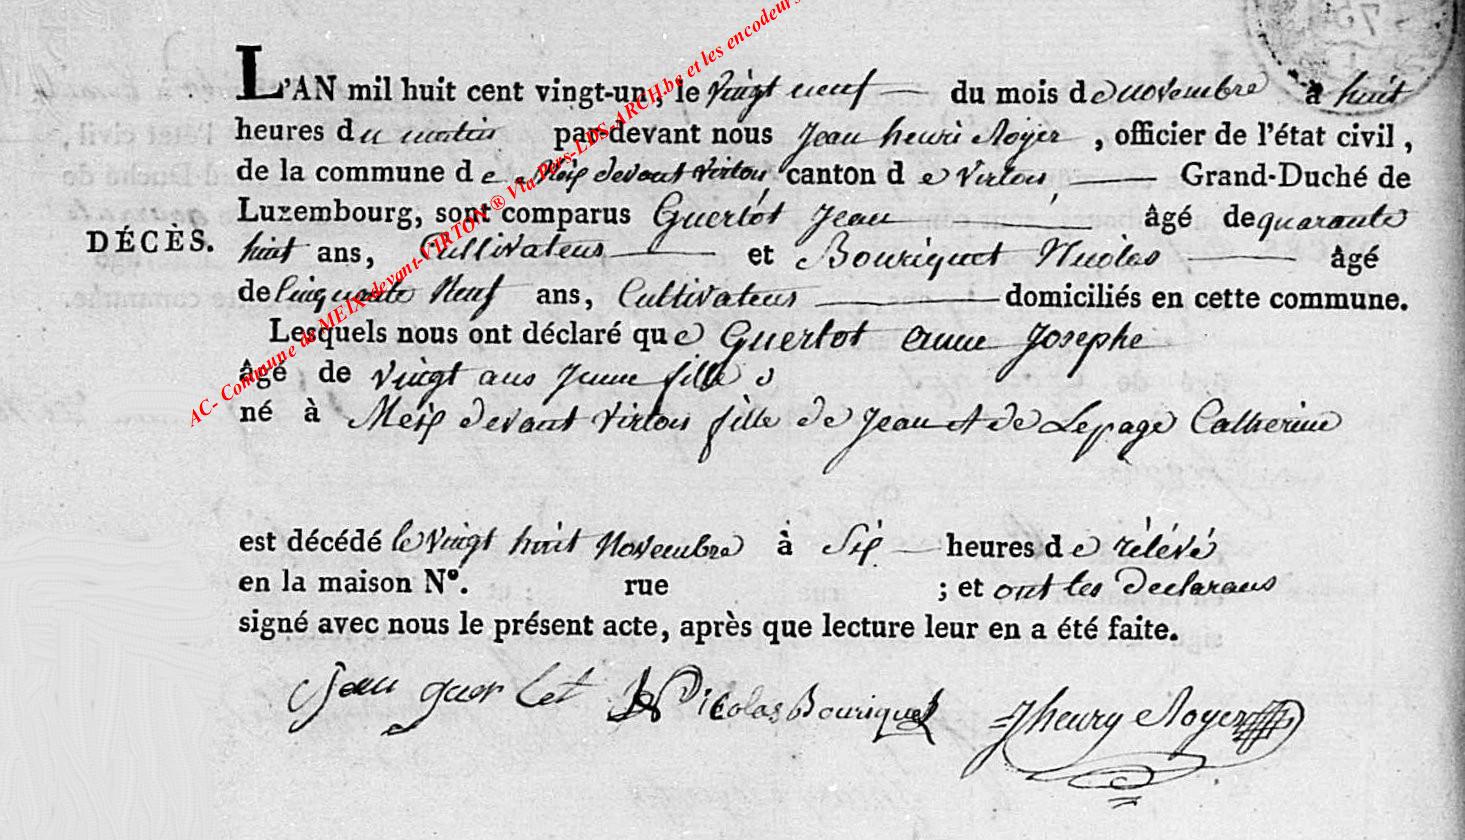 L'AN mil huit cent vingt-un, le vingt neuf du mois de novembre à huit
heures du matin par-devant nous Jean henri Royer, officier de l'état civil,
de la commune de Meix devant virton canton de Virton Grand-Duché de
Luxembourg, sont comparus Guerlot Jean âgé de quarante
DÉCÈS. huit ans, Cultivateur et Bouriquet Nicolas âgé
de Cinquante Neuf ans, Cultivateur domiciliés en cette commune.
Lesquels nous ont déclaré que Guerlot anne Josephe
âgé de vingt ans Jeune fille
né à Meix devant virton fille de Jean et de Lepage Catherine
est décédé le vingt huit Novembre à Six heures de rélévé
en la maison N°. rue ; et ont les declarans
signé avec nous le présent acte, après que lecture leur en a été faite.
Jean guerlot Nicolas Bouriquet Jhenry Royer
AC- Commune de MEIX-devant-VIRTON ® Via Pers-LDS-ARCH.be et les encodeurs
75